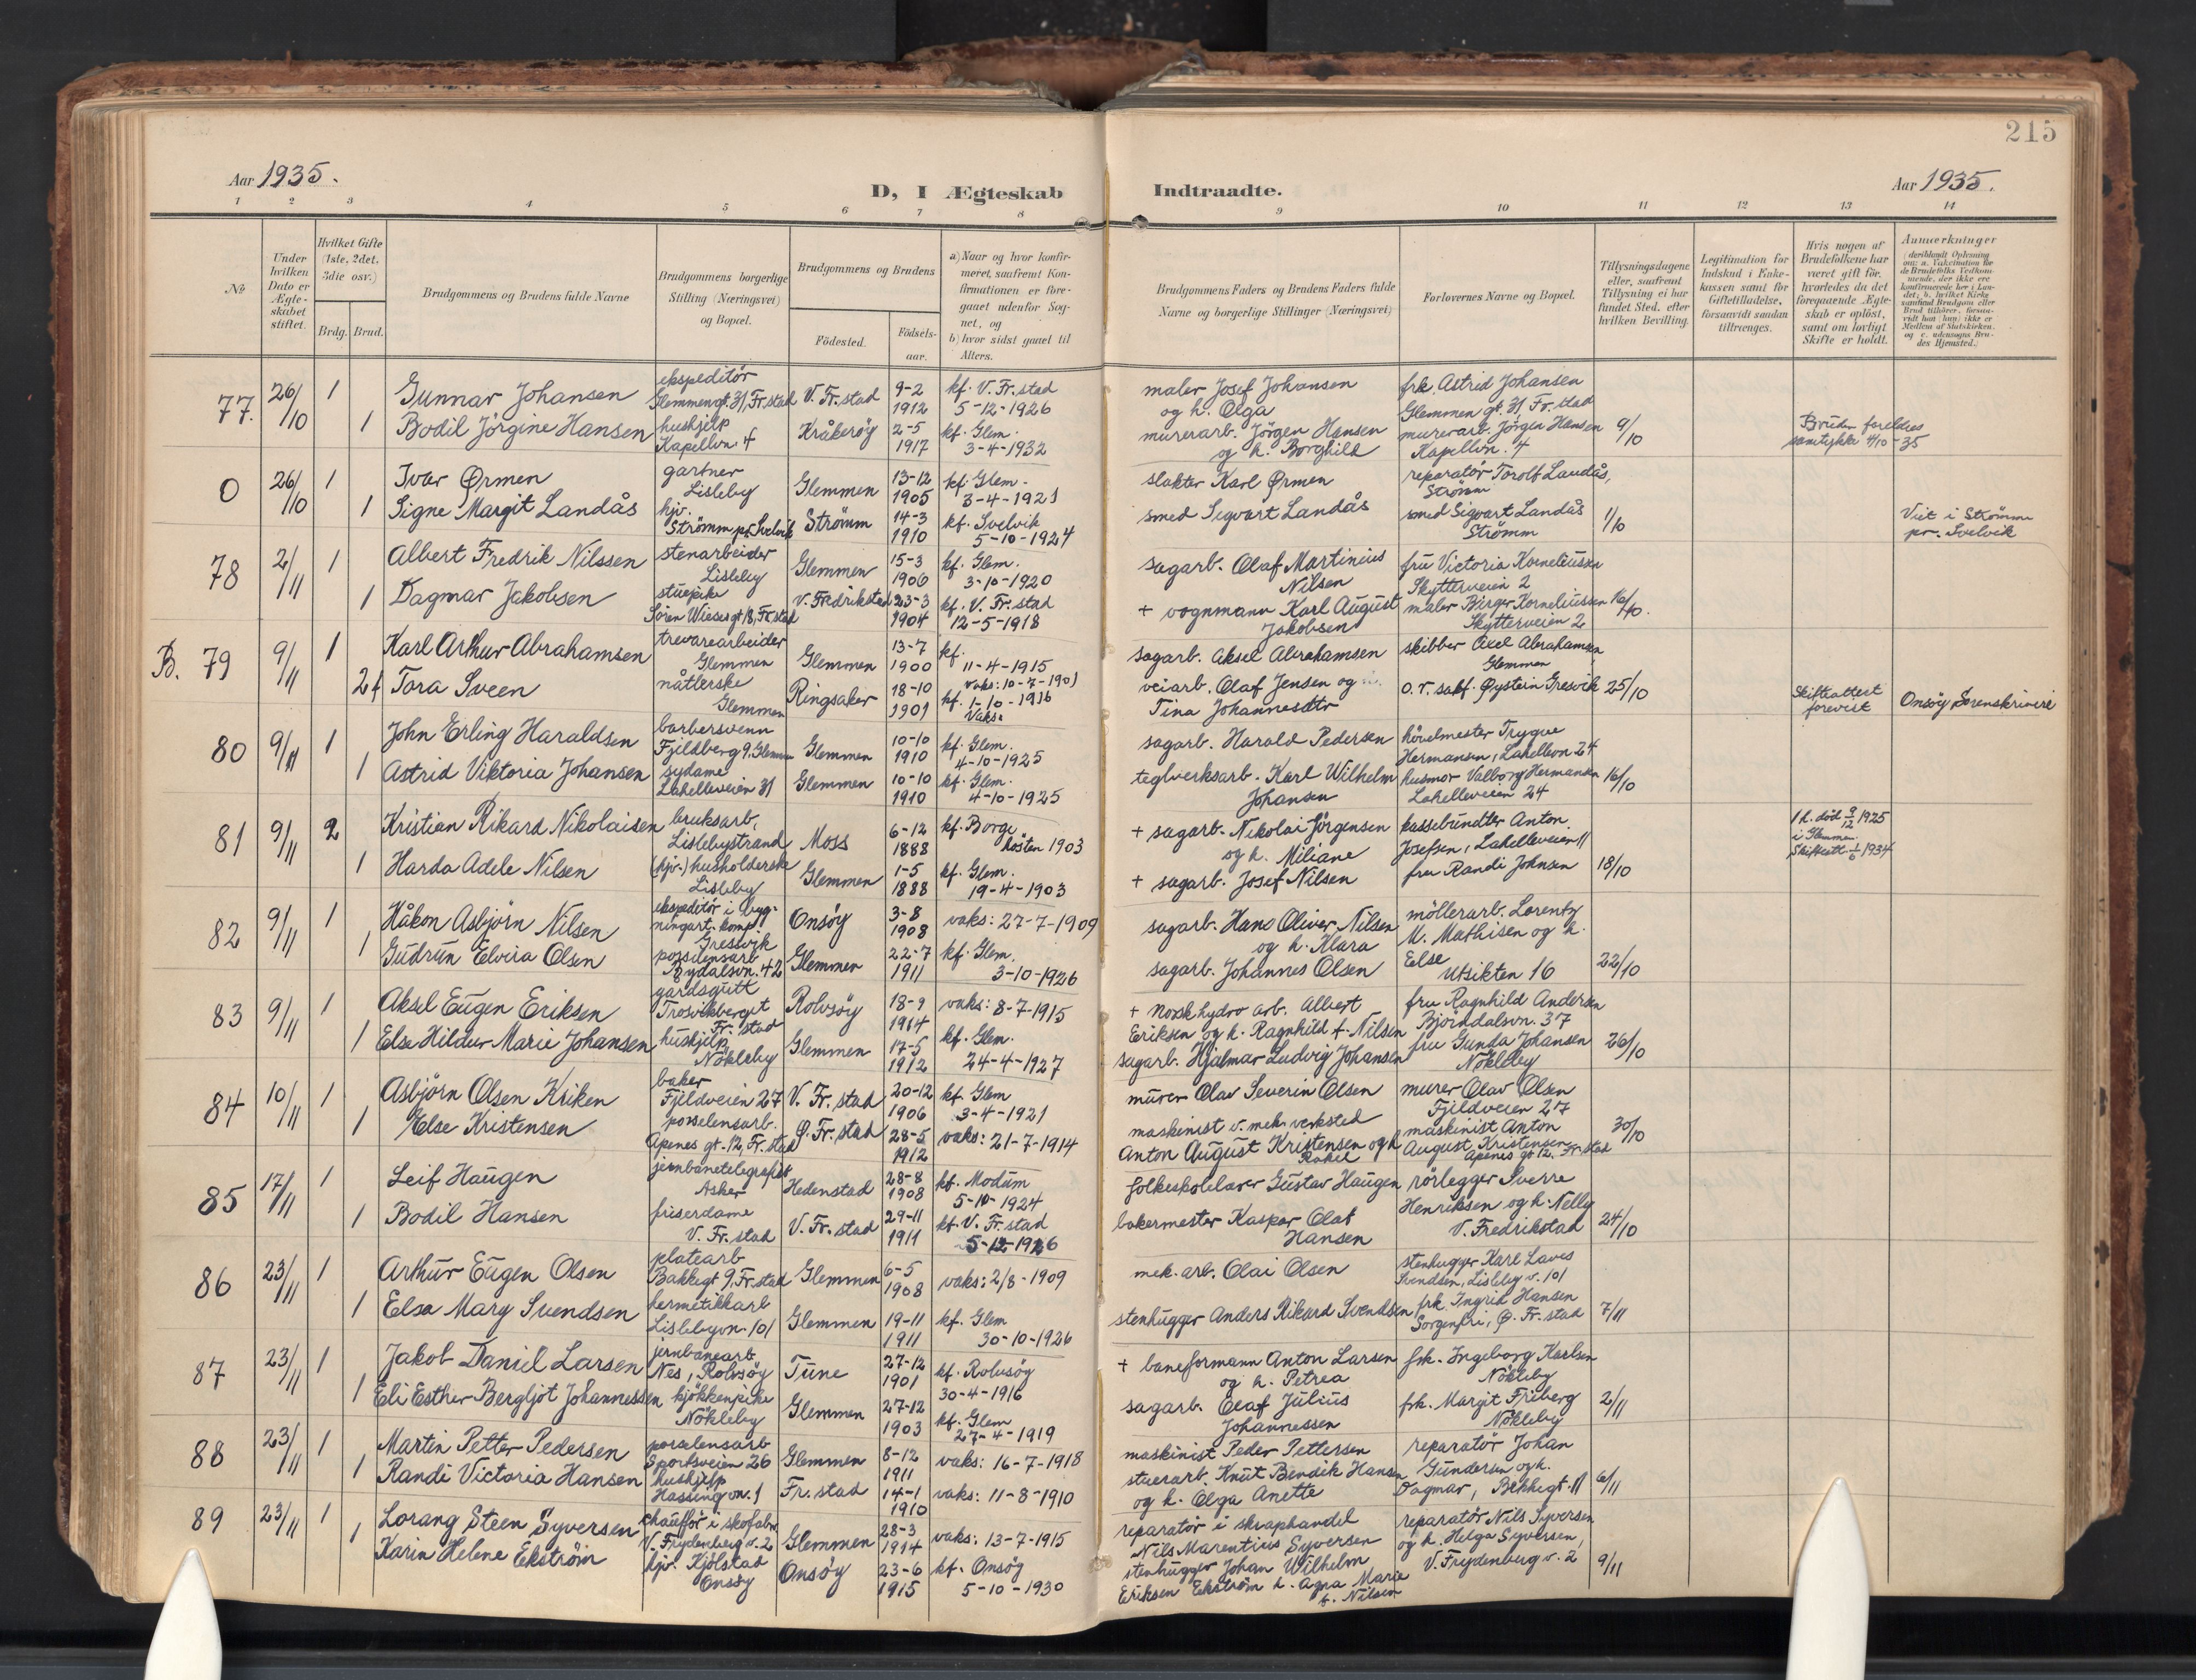 215
Aar 1935.
D, I Ægteskab Indtraadte.
Aar 1935.
1 2 3 4 5 6 7 8 9 10 11 12 13 14
№
Under hvilken Dato er Ægteskabet stiftet.
Hvilket Gifte (1ste, 2det, 3die osv.)
Brdg. Brud.
Brudgommens og Brudens fulde Navne
Brudgommens borgerlige Stilling (Næringsvei) og Bopæl.
Brudgommens og Brudens
Fødested.
Fødsels-aar.
a) Naar og hvor konfir-
meret, saafremt Kon-
firmationen er fore-
gaaet udenfor Sog-
net, og
b) hvor sidst gaaet til
Alters.
Brudgommens Faders og Brudens Faders fulde
Navne og borgerlige Stillinger (Næringsvei)
Forlovernes Navne og Bopæl.
Tillysningsdagene
eller, saafremt
Tillysning ei har
fundet Sted, efter
hvilken Bevilling.
Legitimation for
Indskud i Enke-
kassen samt for
Giftetilladelse,
forsaavidt saadan
tiltrænges.
Hvis nogen af
Brudefolkene har
været gift før,
hvorledes da det
foregaaende Ægte-
skab er opløst,
samt om lovligt
Skifte er holdt.
Anmærkninger
(deriblandt Oplysning
om: a. Vakcination for
de Brudefolks Vedkom-
mende, der ikke ere
konfirmerede her i Lan-
det; b. hvilket Kirke-
samfund Brudgom eller
Brud tilhører, forsaa-
vidt han (hun) ikke er
Medlem af Statskirken,
og c. udensogns Bru-
des Hjemsted.)
77. 26/10 1 Gunnar Johansen ekspeditör Glemmengt. 31, Fr.stad V. Fr.stad 9-2 1912 kf. V. Fr.stad 5-12-1926 maler Josef Johansen og h. Olga frk. Astrid Johansen Glemmen gt. 31, Fr.stad
1 Bodil Jörgine Hansen hushjelp Kapellvn. 4 Kråkeröy 2-5 1917 kf. Glem. 3-4-1932 murerarb. Jörgen Hansen og h. Borghild murerarb. Jörgen Hansen Kapellvn. 4 9/10 Brudens foreldres samtykke 4/10-35
0 26/10 1 Ivar Ørmen gartner Lisleby Glemmen 13-12 1905 kf. Glem. 3-4-1921 slakter Karl Ørmen reparatör Torolf Landås, Strömm
1 Signe Margit Landås hjv. Strömm pr. Svelvik Strömm 14-3 1910 kf. Svelvik 5-10-1924 smed Sigvart Landås smed Sigvart Landås Strömm 1/10 Viet i Strömm pr. Svelvik
78 2/11 1 Albert Fredrik Nilssen stenarbeider Lisleby Glemmen 15-3 1906 kf. Glem. 3-10-1920 sagarb. Olaf Martinius Nilsen fru Victoria Korneliussen Skytterveien 2
1 Dagmar Jakobsen stuepike Sören Wieses gt 18, Fr.stad V. Fredrikstad 23-3 1904 kf. V. Fr.stad 12-5-1918 + vognmann Karl August Jakobsen maler Birger Korneliussen Skytterveien 2 16/10.
B. 79 9/11 1 Karl Arthur Abrahamsen trevarearbeider Glemmen Glemmen 13-7 1900 kf. 11-4-1915 sagarb. Aksel Abrahamsen skibber Axel Abrahamsen Glemmen
2 f Tora Sveen nåtlerske Glemmen Ringsaker 18-10 1901 vaks: 10-7-1901 kf. 1-10-1916 Vaks. veiarb. Olaf Jensen og Tina Johannesdtr o.r. sakf. Øystein Gresvik 25/10 Skifteattest forevist Onsöy Sorenskriveri
80 9/11 1 John Erling Haraldsen barbersvenn Fjeldberg 9. Glemmen Glemmen 10-10 1910 kf. Glem. 4-10-1925 sagarb. Harald Pedersen hövelmester Trygve Hermansen, Lahellevn 24
1 Astrid Viktoria Johansen sydame Lahelleveien 31 Glemmen 10-10 1910 kf. Glem. 4-10-1925 teglverksarb. Karl Wilhelm Johansen husmor Valborg Hermansen Lahelleveien 24 16/10
81 9/11 2 Kristian Rikard Nikolaisen bruksarb. Lislebystrand Moss 6-12 1888 kf. Borge hösten 1903 + sagarb. Nikolai Jörgensen og h. Miliane kassebundter Anton Josefsen, Lahelleveien 11 1 h. död 9/12 1925 i Glemmen. Skifteatt. 1/6 1934
1 Harda Adele Nilsen (hjv.) husholderske Lisleby Glemmen 1-5 1888 kf. Glem. 19-4-1903 + sagarb. Josef Nilsen fru Randi Johnsen 18/10
82 9/11 1 Håkon Asbjörn Nilsen ekspeditör i bygningart. komp. Gressvik Onsöy 3-8 1908 vaks: 27-7-1909 sagarb. Hans Oliver Nilsen og h. Klara möllerarb. Lorentz M. Mathisen og h.
1 Gudrun Elvira Olsen porselensarb Rydalsvn. 42 Glemmen 22-7 1911 kf. Glem. 3-10-1926 sagarb. Johannes Olsen Else Utsikten 16 22/10
83 9/11 1 Aksel Eugen Eriksen gårdsgutt Trosvikberget Fr. stad Rolvsöy 18-9 1914 vaks: 8-7-1915 + norsk hydro arb. Albert Eriksen og h. Ragnhild f. Nilsen fru Ragnhild Andersen Björndalsvn. 37
1 Else Hildur Marie Johansen hushjelp Nökleby Glemmen 17-5 1912 kf. Glem. 24-4-1927 sagarb. Hjalmar Ludvig Johansen fru Gunda Johansen Nökleby 26/10
84 10/11 1 Asbjörn Olsen Kriken baker Fjeldveien 27 V. Fr. stad 20-12 1906 kf. Glem 3-4-1921 murer Olav Severin Olsen murer Olav Olsen Fjeldveien 27
1 Else Kristensen porselensarb. Apenes gt. 12, Fr. stad Ø. Fr. stad 28-5 1912 vaks: 21-7-1914 maskinist v. mek. verksted Anton August Kristensen og h Rakel maskinist Anton August Kristensen Apenes gt 12. Fr. stad 30/10
85 17/11 1 Leif Haugen jernbanetelegrafist Asker Hedenstad 28-8 1908 kf. Modum 5-10-1924 folkeskolelærer Gustav Haugen rörlegger Sverre Henriksen og h. Nelly
1 Bodil Hansen friserdame V. Fr. stad V. Fr. stad 29-11 1911 kf. V. Fr. stad 5-12-1926 bakermester Kaspar Olaf Hansen V. Fredrikstad 24/10
86 23/11 1 Arthur Eugen Olsen platearb Bakkegt 9, Fr.stad Glemmen 6-5 1908 vaks: 2/8-1909 mek. arb. Olai Olsen stenhugger Karl Laves Svendsen, Lisleby v. 101
1 Elsa Mary Svendsen hermetikkarb Lislebyvn. 101 Glemmen 19-11 1911 kf. Glem 30-10-1926 stenhugger Anders Rikard Svendsen frk. Ingrid Hansen Sorgenfri, Ø. Fr. stad 7/11
87 23/11 1 Jakob Daniel Larsen jernbanearb Nes, Rolvsöy Tune 27-12 1901 kf. Rolvsöy 30-4-1916 + baneformann Anton Larsen og h. Petrea frk. Ingeborg Karlsen Nökleby
1 Eli Esther Bergljot Johannessen kjökkenpike Nökleby Glemmen 27-12 1903 kf. Glem 27-4-1919 sagarb. Olaf Julius Johannessen frk. Margit Friberg Nökleby 2/11
88 23/11 1 Martin Petter Pedersen porselensarb Sportsveien 26 Glemmen 8-12 1911 vaks: 16-7-1918 maskinist Peder Pettersen reparatör Johan Gundersen og h.
1 Randi Victoria Hansen hushjelp Hassingvn. 1 Fr. stad 14-1 1910 vaks: 11-8-1910 stuerarb. Knut Bendik Hansen og h. Olga Anette Dagmar, Bekkegt. 11 6/11
89 23/11 1 Lorang Steen Syversen chaufför i skofabr V. Frydenberg v. 2 Glemmen 28-3 1914 vaks: 13-7-1915 reparatör i skraphandel Nils Marentius Syversen reparatör Nils Syversen og h. Helga Syversen,
1 Karin Helene Ekström hjv. Kjölstad Onsöy Onsöy 23-6 1915 kf. Onsöy 5-10-1930 stenhugger Johan Wilhelm Eriksen Ekström h. Agna Marie f. Nilsen V. Frydenberg v. 2 9/11